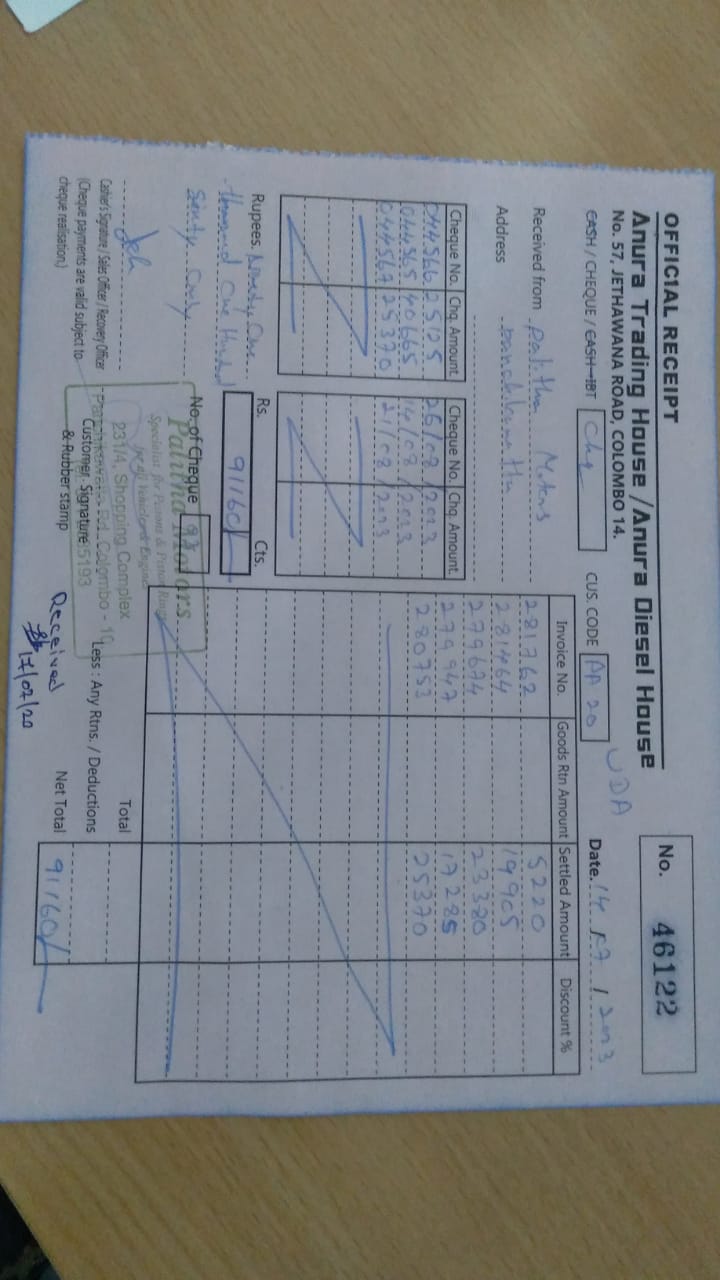 OFFICIAL RECEIPT
No. 46122
Anura Trading House / Anura Diesel House
No. 57, JETHAWANA ROAD, COLOMBO 14.
UDA
CASH / CHEQUE / CASH - IBT Chq CUS. CODE PA 20 Date. 14 / 07 / 2023
Received from Palitha Motors
Address
Invoice No. Goods Rtn Amount Settled Amount Discount %
281762 5220
281464 19905
279674 23380
279947 17285
280753 25370
Cheque No. Chq. Amount. Cheque No. Chq. Amount.
044566 25125 26/08/2023
044565 40665 14/08/2023
044567 25370 21/08/2023
Rupees. Ninety One
thousand One Hundred
Sixty Only
Rs. Cts.
91160/-
No. of Cheque
Palitha Motors
Specialist for Pistons & Piston Rings
for all Vehicles & Engines
231/4, Shopping Complex
Rd, Colombo - 10
Cashier's Signature / Sales Officer / Recovery Officer
(Cheque payments are valid subject to
cheque realisation.)
Customer. Signature
& Rubber stamp
Total
Less : Any Rtns. / Deductions
Net Total 91160/-
Received
17/07/20